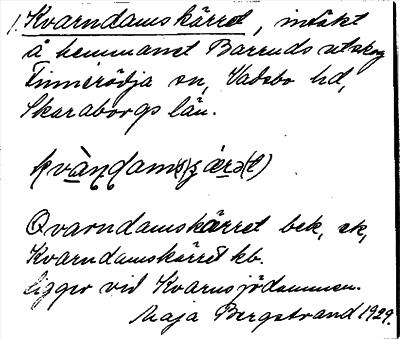 1. Kvarndamskärret, intäkt
å hemmanet Barruds utskog
Finnerödja sn, Vadsbo hd,
Skaraborgs län.
kvàṇdam(s)ʂärə(t)
Qvarndamskärret bek, ek,
Kvarndamskärret kb.
Ligger vid Kvarnsjödammen.
Maja Bergstrand 1929.